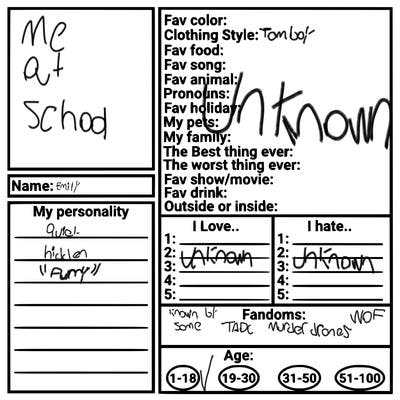 Me
at
School
Name: Emily
My personality
quiet
hidden
"Funny"
Fav color:
Clothing Style: Tomboy
Fav food:
Fav song:
Fav animal:
Pronouns:
Fav holiday:
My pets:
My family:
Unknown
The Best thing ever:
The worst thing ever:
Fav show/movie:
Fav drink:
Outside or inside:
I Love..
1:
2:
3:
4:
5:
Unknown
I hate..
1:
2:
3:
4:
5:
Unknown
Fandoms:
known by some
TADC
Murder drones
WOF
Age:
1-18 19-30 31-50 51-100